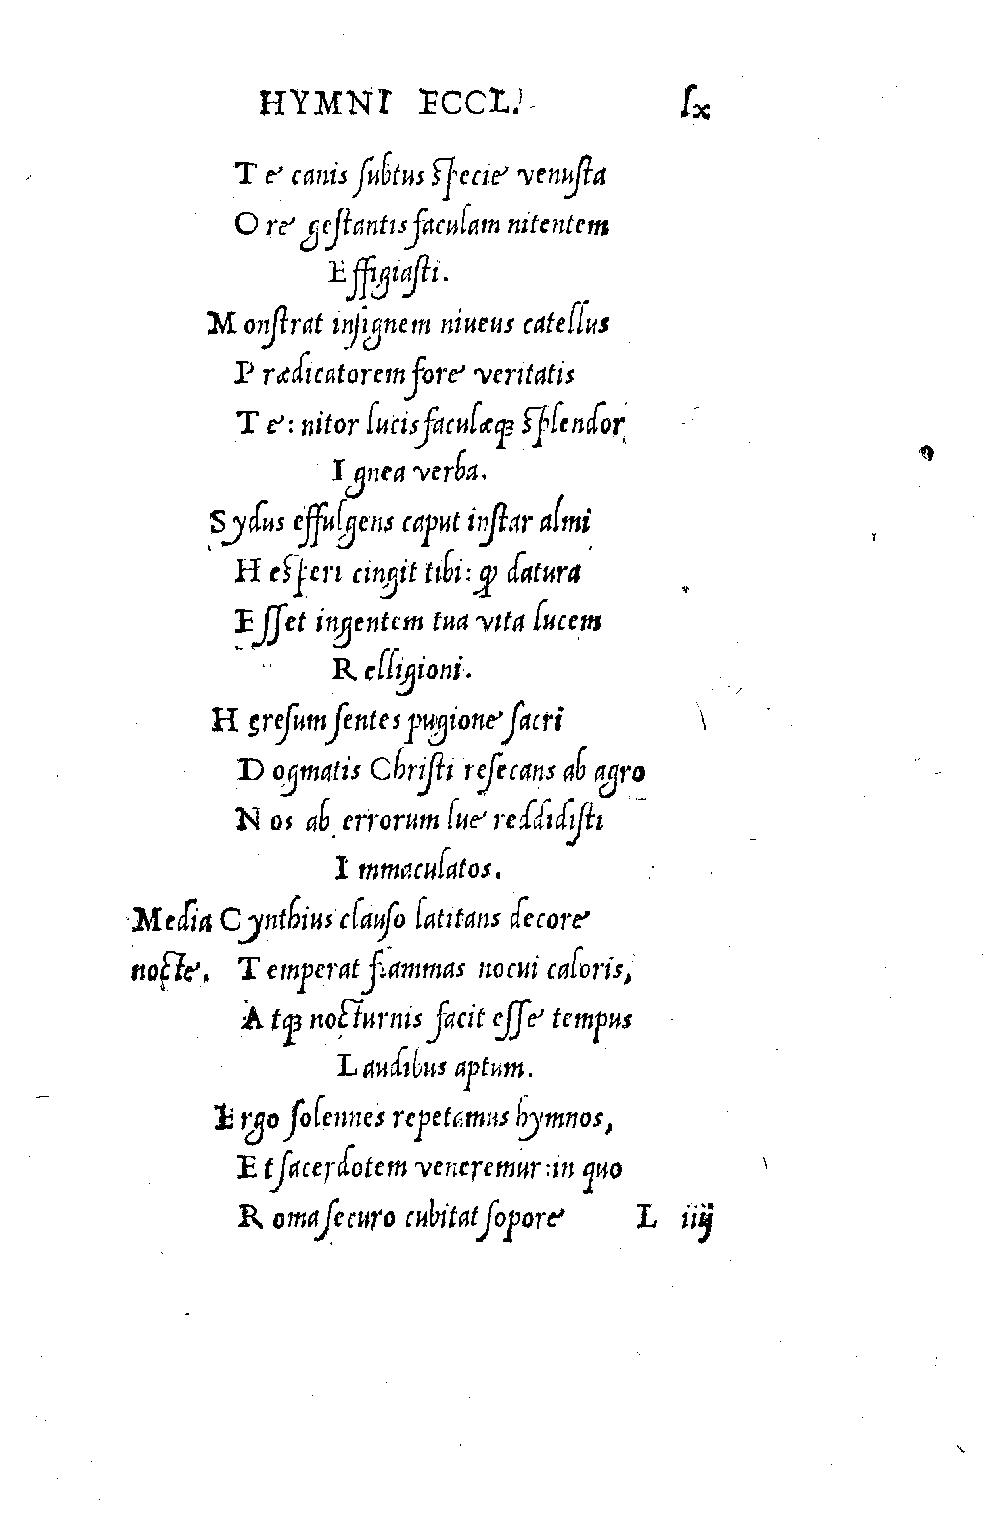 HYMNI ECCL. lx
Te canis subtus specie venusta
Ore gestantis faculam nitentem
Effigiasti.
Monstrat insignem niueus catellus
Prædicatorem fore veritatis
Te: nitor lucis faculæqꝫ splendor
Ignea verba.
Sydus effulgens caput instar almi
Hesperi cingit tibi: ꝙ datura
Esset ingentem tua vita lucem
Relligioni.
Hęresum sentes pugione sacri
Dogmatis Christi resecans ab agro
Nos ab errorum lue reddidisti
Immaculatos.
Media Cynthius clauso latitans decore
nocte. Temperat flammas nocui caloris,
Atqꝫ nocturnis facit esse tempus
Laudibus aptum.
Ergo solennes repetamus hymnos,
Et sacerdotem veneremur: in quo
Roma securo cubitat sopore L iiij